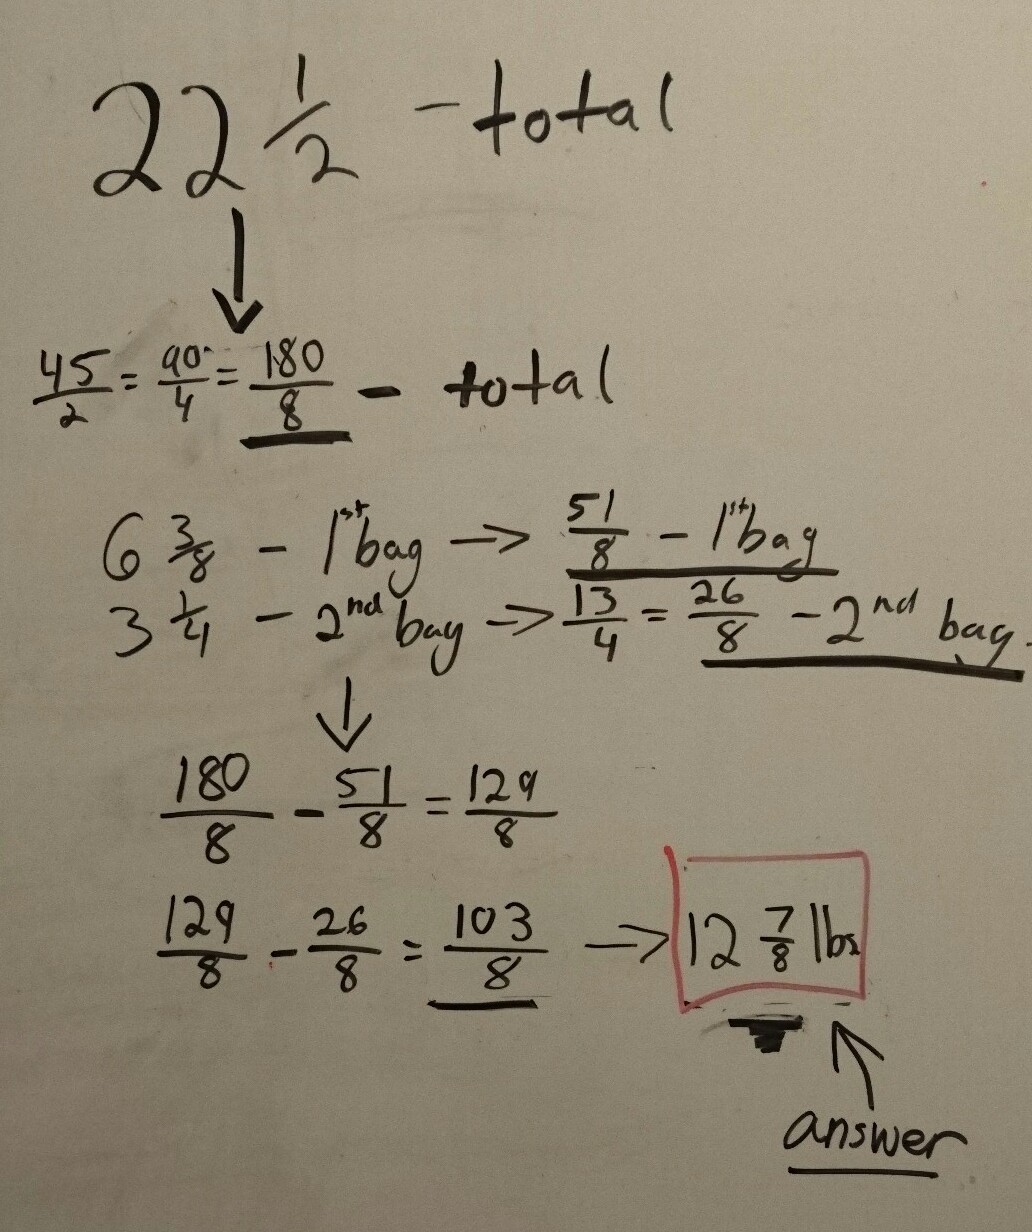 22 1/2 - total
45/2 = 90/4 = 180/8 - total
6 3/8 - 1st bag → 51/8 - 1st bag
3 1/4 - 2nd bag → 13/4 = 26/8 - 2nd bag.
180/8 - 51/8 = 129/8
129/8 - 26/8 = 103/8 → 12 7/8 lbs
answer